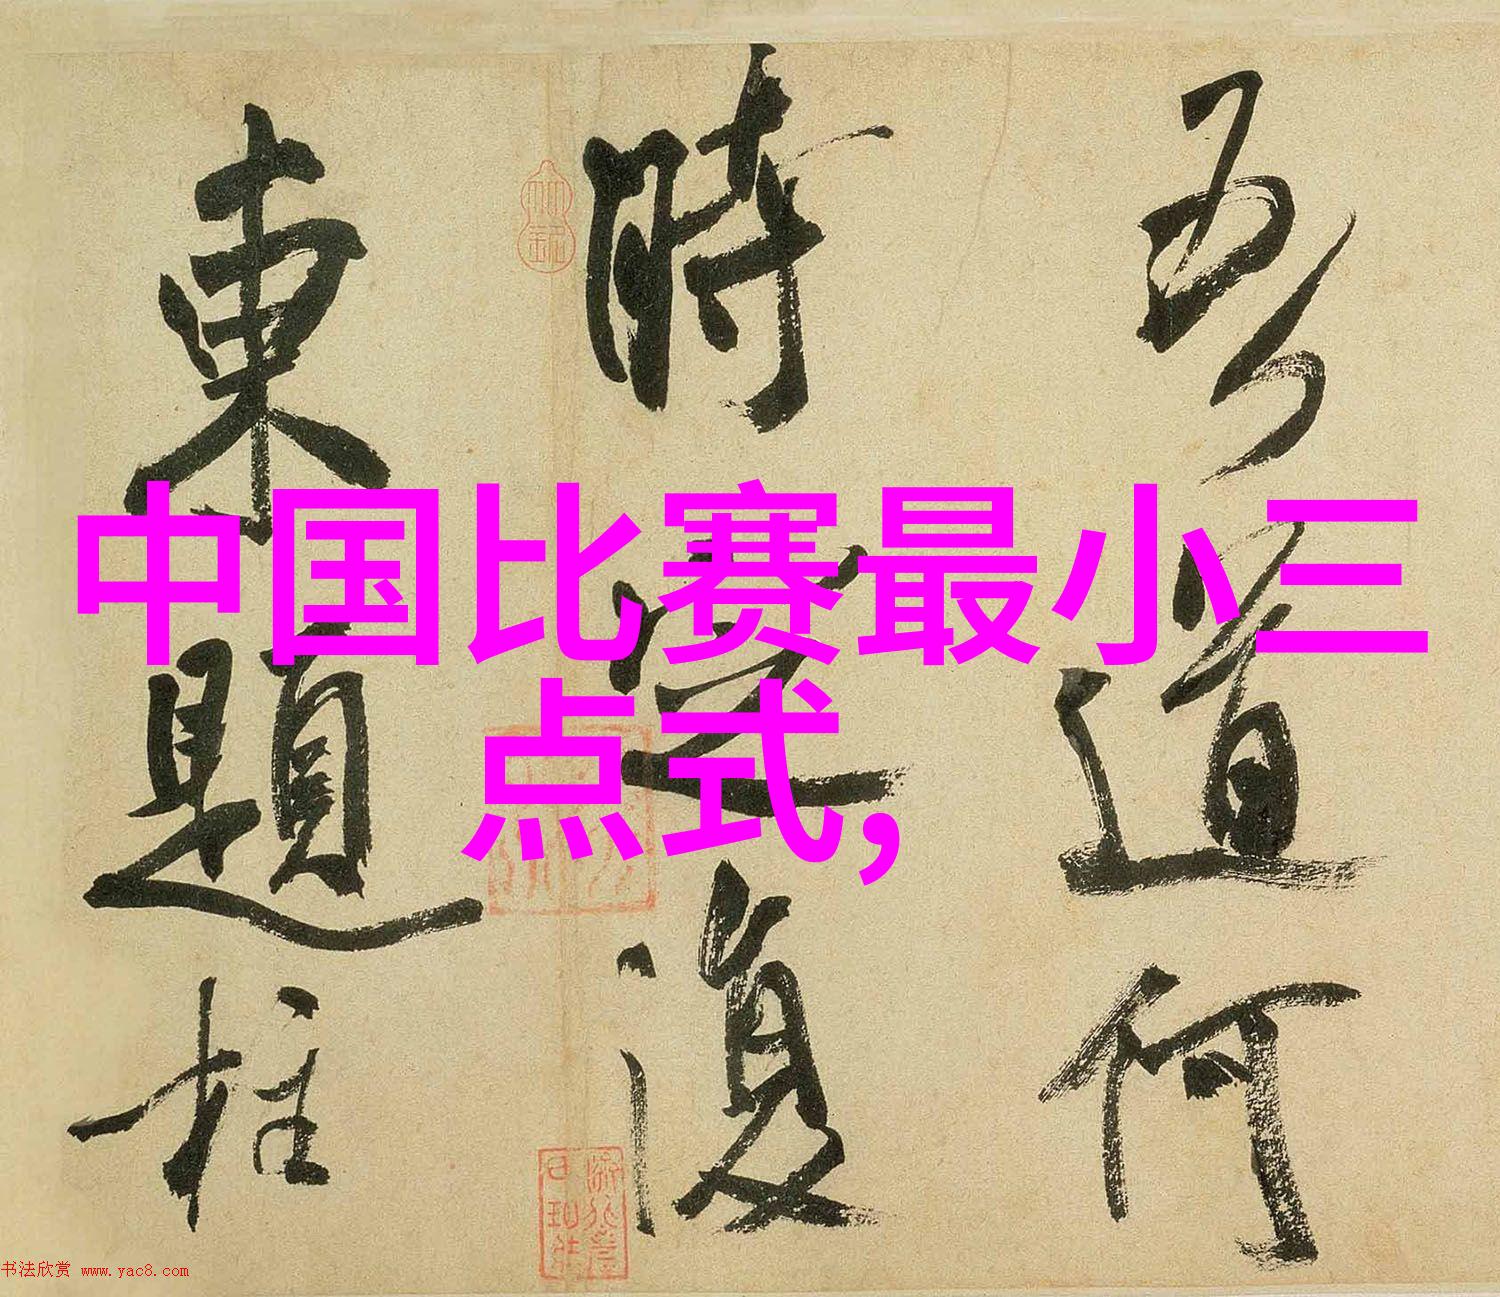 吾道何
時定復
東題柱
中国比赛最小三
点式,
书法欣赏 www.yac8.com